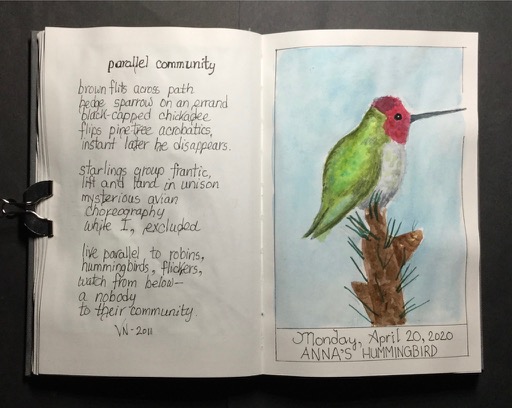 parallel community
brown flits across path
hedge sparrow on an errand
black-capped chickadee
flips pine tree acrobatics,
instant later he disappears.
starlings group frantic,
lift and land in unison
mysterious avian
choreography
while I, excluded
live parallel to robins,
hummingbirds, flickers,
watch from below--
a nobody
to their community.
VN-2011
Monday, April 20, 2020
ANNA'S HUMMINGBIRD